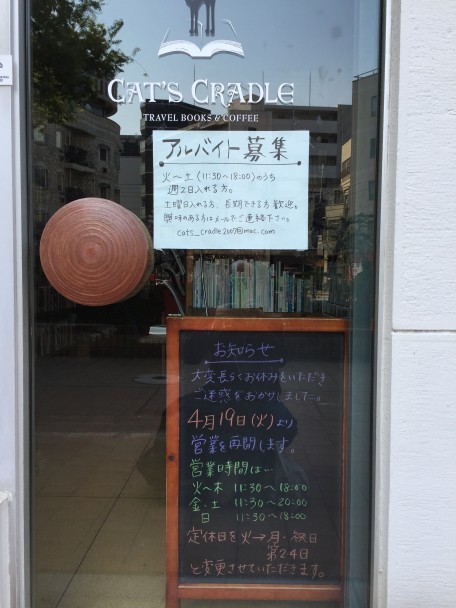 CAT'S CRADLE
TRAVEL BOOKS & COFFEE
アルバイト募集
火〜土(11:30〜18:00)のうち
週2日入れる方。
土曜日入れる方、長期できる方 歓迎。
興味のある方はメールでご連絡下さい。
cats_cradle2007@mac.com
お知らせ
大変長らくお休みをいただき
ご迷惑をおかけしました。
4月19日(火)より
営業を再開します。
営業時間は…
火〜木 11:30〜18:00
金・土 11:30〜20:00
日 11:30〜18:00
定休日を火→月・祝日
第24日
と変更させていただきます。